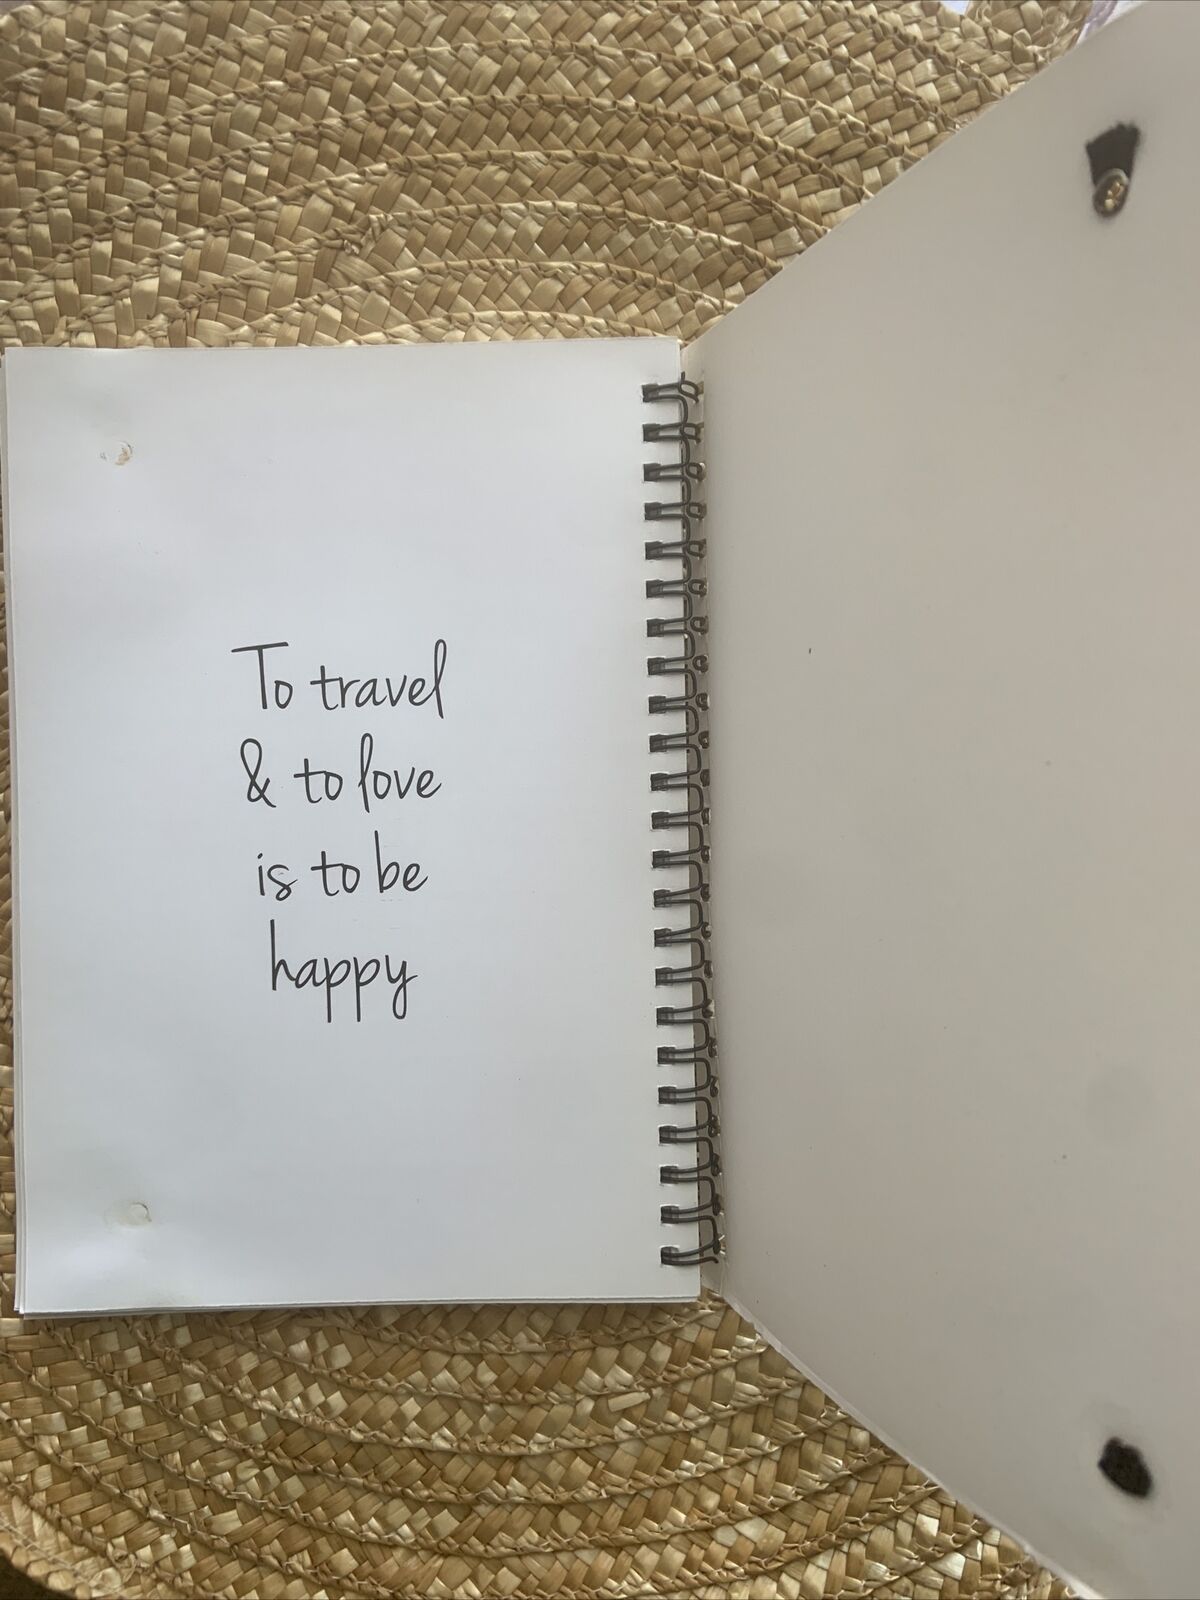 To travel
& to love
is to be
happy